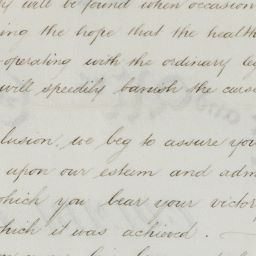 will be found when occasion
ing the hope that the health
operating with the ordinary leg
will speedily banish the curse
lusion, we beg to assure you
upon our esteem and adm
which you bear your victor
hich it was achieved.